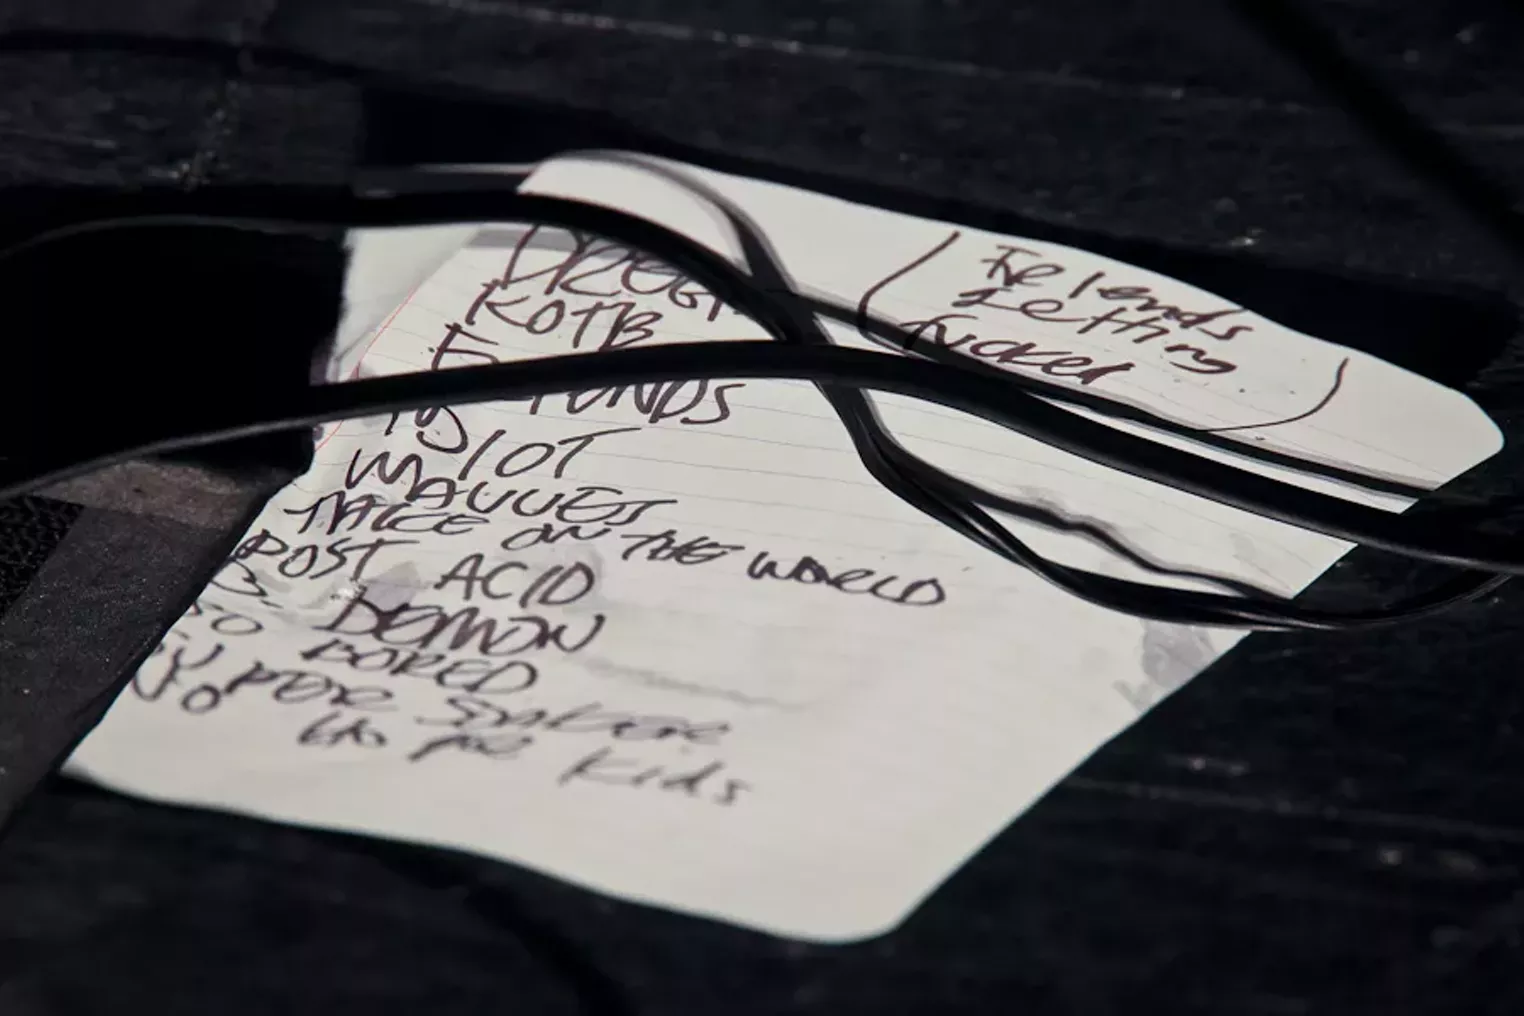 KOTB
IDIOT
WAVVES
TAKE ON THE WORLD
POST ACID
DEMON
SO BORED
SUPER SOAKER
NO HOPE KIDS
Friends
getting
fucked